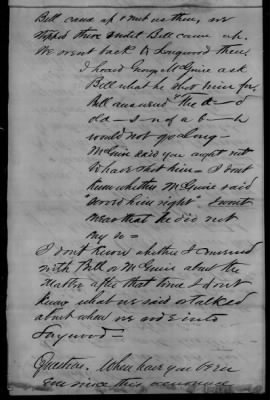 Bell came up & met us then, we
stopped there until Bell came up.
We went back to Longwood then.
I heard George McGuire ask
Bell what he shot him for.
Bell answered "The d—d
old – S – n of a b – h
would not go long –
McGuire said you ought not
to have shot him – I dont
know whether McGuire said
"served him right" I wont
swear that he did not
say so –
I dont know whether I conversed
with Bell or McGuire about the
matter after that time I don't
know what we said or talked
about when we rode into
Longwood –
Question. Where have you been
you since this occurrence